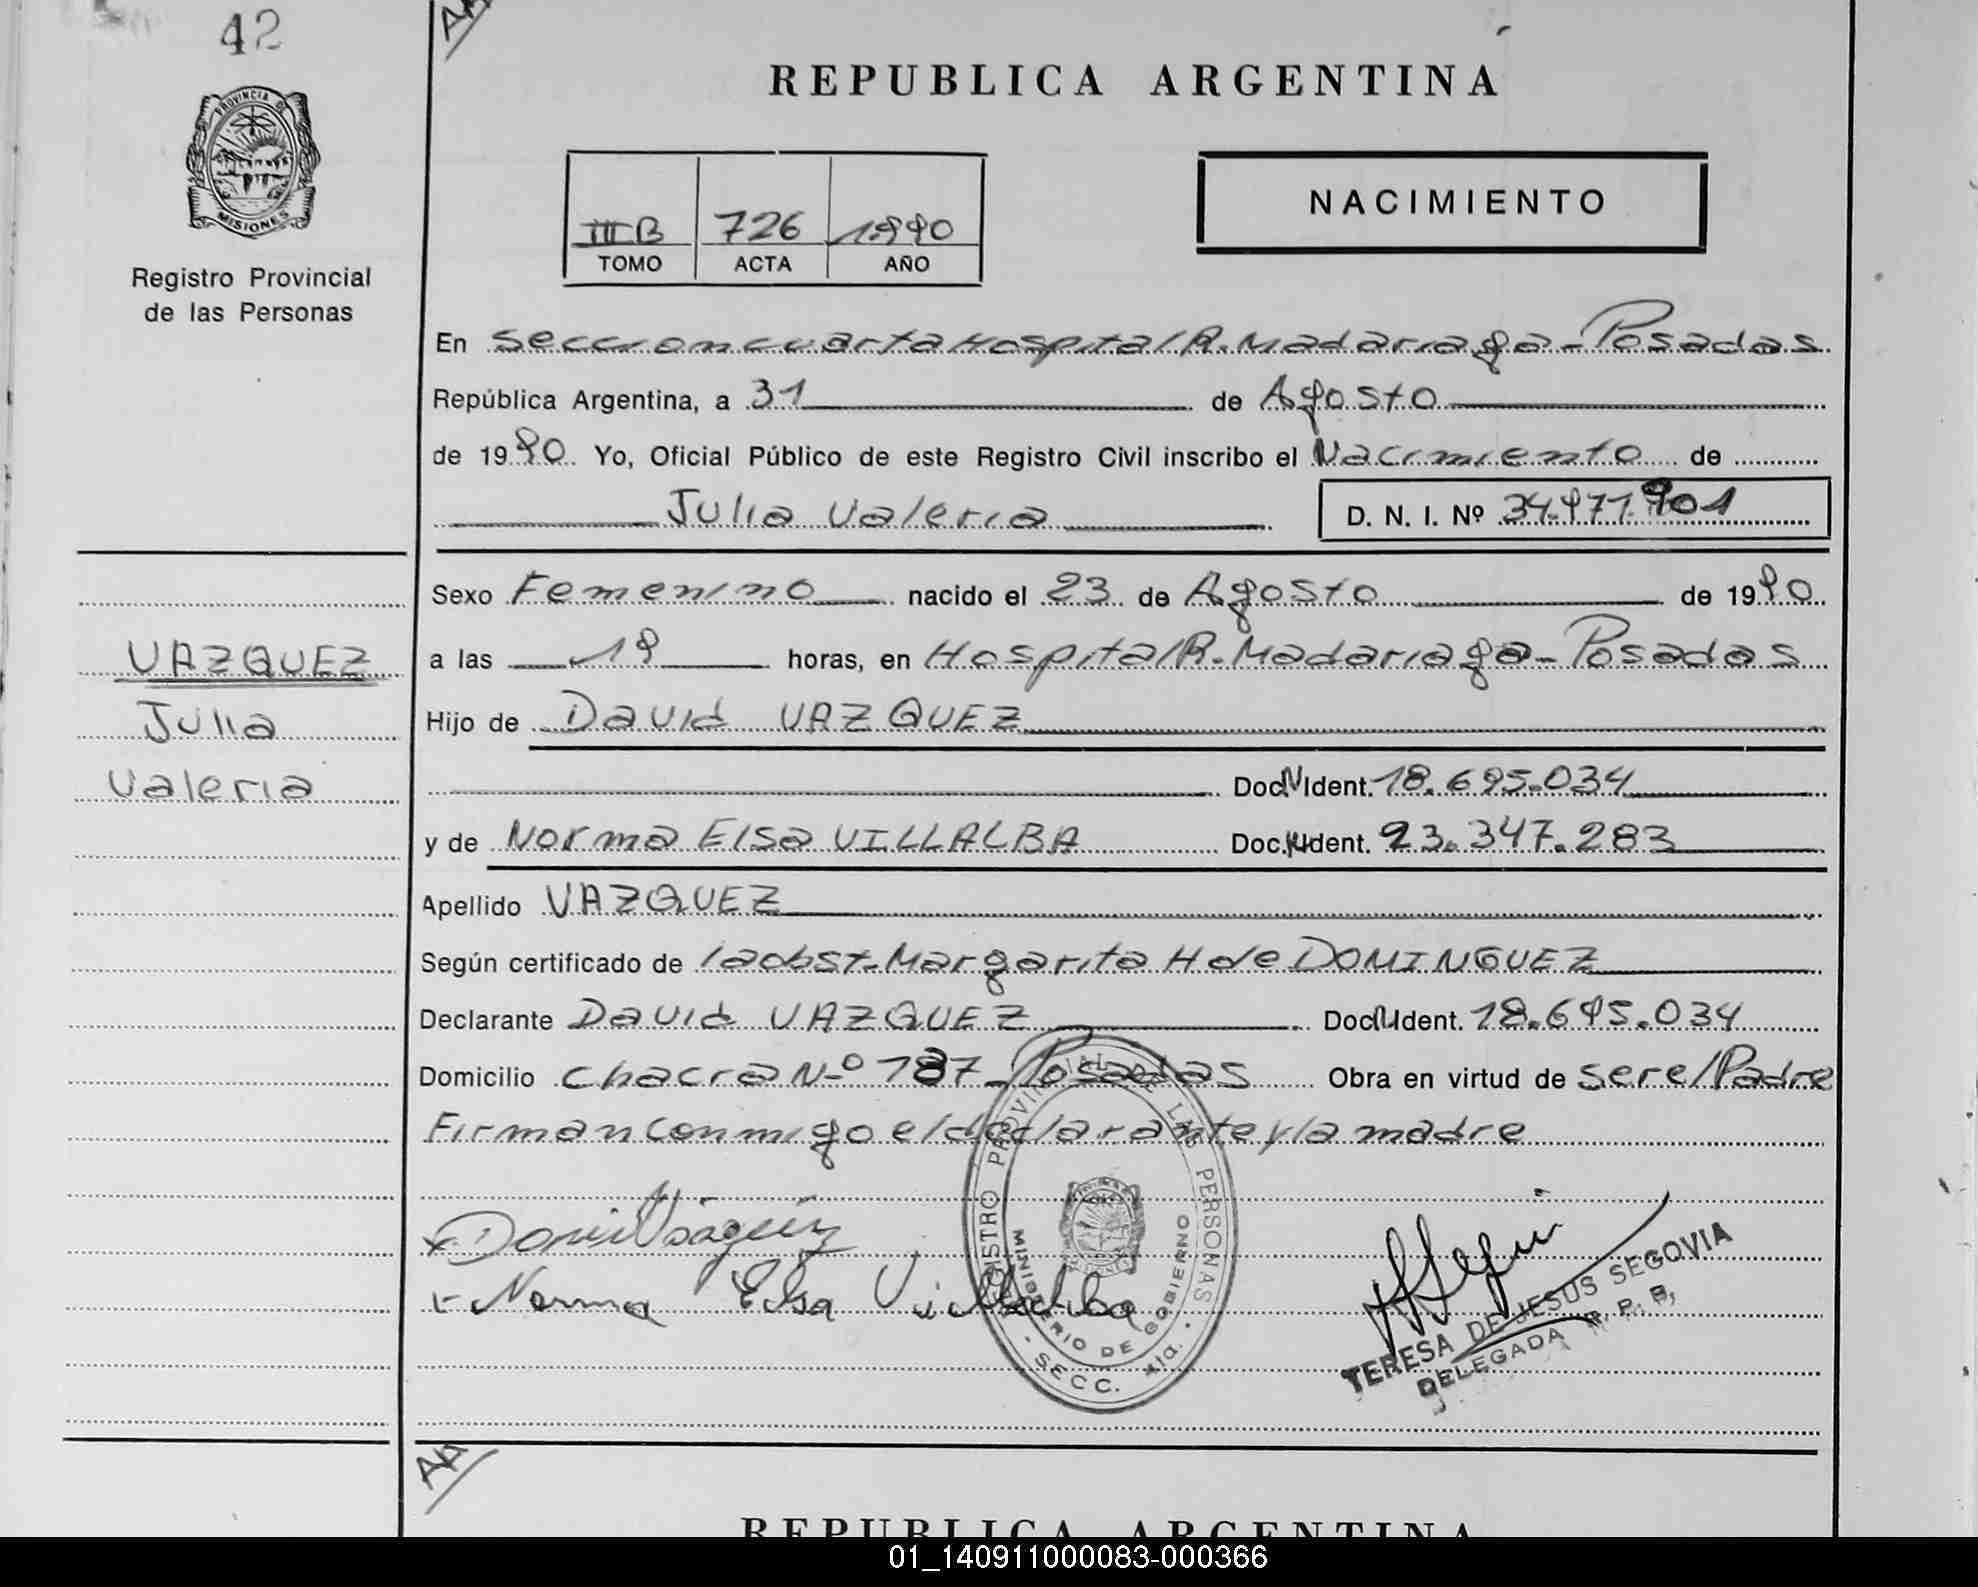 42
AA
REPUBLICA ARGENTINA
PROVINCIA DE MISIONES
Registro Provincial
de las Personas
NACIMIENTO
III B 726 1990
TOMO ACTA AÑO
En Seccion cuarta Hospital R. Madariaga - Posadas
República Argentina, a 31 de Agosto
de 1990 Yo, Oficial Público de este Registro Civil inscribo el Nacimiento de
Julia Valeria D. N. I. Nº 34.971.901
Sexo Femenino nacido el 23 de Agosto de 1990
VAZQUEZ
Julia
Valeria
a las 19 horas, en Hospital R. Madariaga - Posadas
Hijo de David VAZQUEZ
Doc. N Ident. 18.695.034
y de Norma Elsa VILLALBA Doc. N Ident. 23.347.283
Apellido VAZQUEZ
Según certificado de la obst. Margarita H de DOMINGUEZ
Declarante David VAZQUEZ Doc. N Ident. 18.695.034
Domicilio chacra Nº 187 - Posadas Obra en virtud de ser el Padre
Firman conmigo el declarante y la madre
Norma Elsa Villalba
REGISTRO PROVINCIAL DE LAS PERSONAS
MINISTERIO DE GOBIERNO
SECC. 4ta.
TERESA DE JESUS SEGOVIA
DELEGADA R. P. P.
AA
REPUBLICA ARGENTINA
01_140911000083-000366